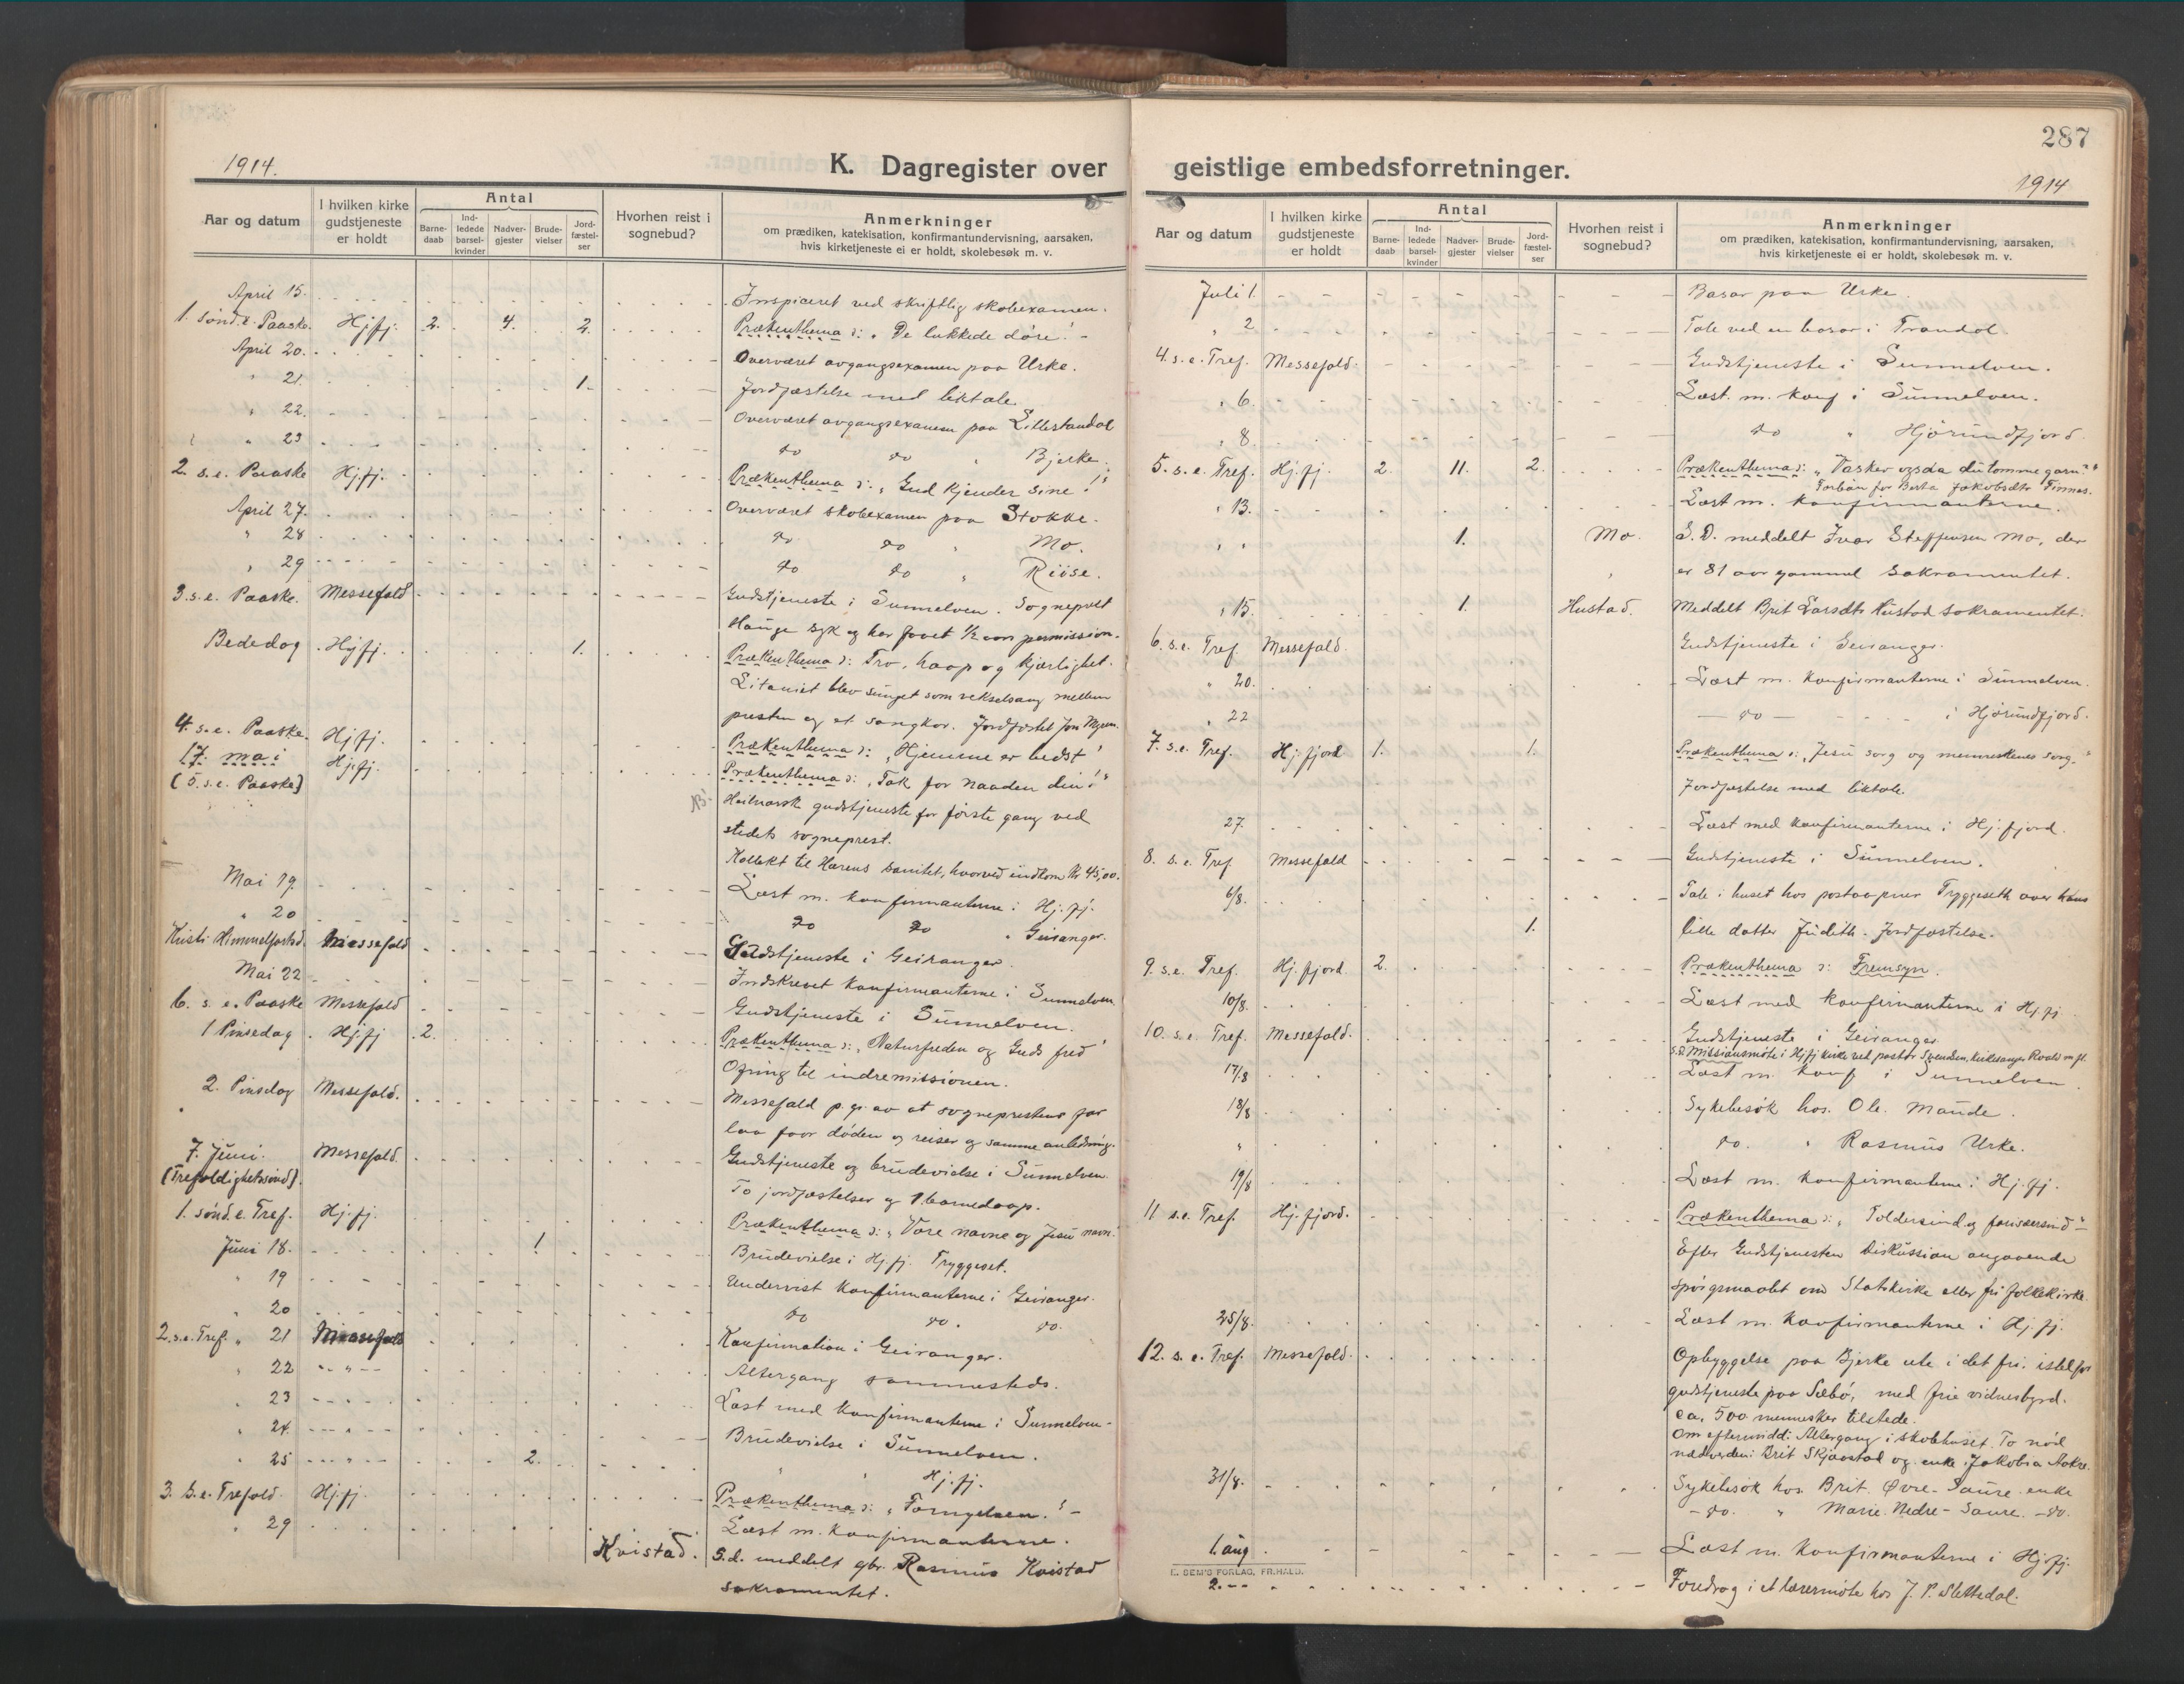 1914.
K. Dagregister over
Aar og datum
I hvilken kirke gudstjeneste er holdt
Antal
Barne-daab
Ind-ledede barsel-kvinder
Nadver-gjester
Brude-vielser
Jord-fæstel-ser
Hvorhen reist i sognebud?
Anmerkninger
om prædiken, katekisation, konfirmantundervisning, aarsaken,
hvis kirketjeneste ei er holdt, skolebesøk m. v.
April 15. Inspiceret ved skriftlig skoleexamen.
1. sønd. e. Paaske. Hjfj. 2. 4. 2. Prækenthema ɔ: "De lukkede døre!" -
April 20. Overværet avgangsexamen paa Urke.
" 21. 1. Jordfæstelse med liktale.
" 22. Overværet avgangsexamen paa Lillestandal
" 23 do do " Bjerke.
2. s. e. Paaske Hj.fj. Prækenthema ɔ: "Gud kjender sine!"
April 27. Overværet skoleexamen paa Stokke.
" 28 do do " Mo.
" 29 do do " Riise.
3. s. e. Paaske. Messefald Gudstjeneste i Sunnelven. Sogneprest
Hauge syk og har faaet 1/2 aars permission.
Bededag Hjfj. 1. Prækenthema ɔ: Tro, haap og kjærlighet.
Litaniet blev sunget som vekselsang mellem
presten og et sangkor. Jordfæstet Jon
4. s. e. Paaske. Hjfj. Prækenthema ɔ: "Hjemme er bedst"
17. mai Hj.fj. Prækenthema ɔ: "Tak for naaden din!"
(5. s. e. Paaske) NB! Heilnorsk gudstjeneste for første gang ved
stedets sogneprest.
Kollekt til Hærens sanitet, hvorved indkom Kr 45,00.
Mai 19. Læst m. konfirmanterne i Hj.fj.
" 20 do do " Geiranger.
Kristi Himmelfartsd. Messefald Gudstjeneste i Geiranger.
Mai 22 Indskrevet konfirmanterne i Sunnelven.
6. s. e. Paaske Messefald Gudstjeneste i Sunnelven.
1 Pinsedag Hj.fj 2. Prækenthema ɔ: "Naturfreden og Guds fred"
Ofring til indremissionen.
2. Pinsdag Messefald. Messefald p. gr. av at sogneprestens far
laa for døden og reiser og samme anledning.
7. Juni. Messefald. Gudstjeneste og brudevielse i Sunnelven.
(Trefoldighetssønd). To jordfæstelser og 1 barnedaap.
1. sønd. e. Tref. Hj.fj. Prækenthema ɔ: "Vore navne og Jesu navn"
Juni 18. 1 Brudevielse i Hj.fj. Tryggeset.
" 19 Undervist konfirmanterne i Geiranger.
" 20 do do. do.
2. s. e. Tref. " 21 Messefald Konfirmation i Geiranger.
" 22 Altergang sammesteds.
" 23 Læst med konfirmanterne i Sunnelven.
" 24. Brudevielse i Sunnelven.
" 25 2. " " Hj.fj.
3. s. e. Trefold. Hj.fj. Prækenthema ɔ: "Fornyelsen!" -
" 29 Læst m. konfirmanterne.
Kvistad. S.d. meddelt gbr. Rasmus Kvistad
sakramentet.
287
geistlige embedsforretninger.
1914
Aar og datum
I hvilken kirke gudstjeneste er holdt
Antal
Barne-daab
Ind-ledede barsel-kvinder
Nadver-gjester
Brude-vielser
Jord-fæstel-ser
Hvorhen reist i sognebud?
Anmerkninger
om prædiken, katekisation, konfirmantundervisning, aarsaken,
hvis kirketjeneste ei er holdt, skolebesøk m. v.
Juli 1. Basar paa Urke.
" 2 Tale ved en basar i Trandal
4. s. e. Tref. Messefald. Gudstjeneste i Sunnelven.
" 6. Læst m. konf i Sunnelven.
" 8. do " Hjørundfjord
5. s. e. Tref. Hj.fj. 2. 11. 2. Prækenthema ɔ: "Vasker ogsaa du tomme garn?"
Forbøn for Berta Jakobsdtr Finnes.
" 13. Læst m. konfirmanterne.
" " 1. Mo. S. D. meddelt Ivar Steffensen Mo, der
er 81 aar gammel sakramentet.
" 15. 1. Hustad. Meddelt Brit Larsdtr Hustad sakramentet.
6. s. e. Tref Messefald. Gudstjeneste i Geiranger.
" 20. Læst m. konfirmanterne i Sunnelven.
" 22 — do — i Hjørundfjord.
7. s. e. Tref. Hj.fjord 1. 1. Prækenthema ɔ: "Jesu sorg og menneskenes sorg."
Jordfæstelse med liktale.
27. Læst med konfirmanterne i Hj.fjord.
8. s. e. Tref Messefald Gudstjeneste i Sunnelven.
6/8. Tale i huset hos postaapner Tryggeseth over hans
1. lille datter Judith. Jordfæstelse.
9. s. e. Tref. Hj.fjord. 2. Prækenthema ɔ: Fremsyn.
10/8. Læst med konfirmanterne i Hj.fj
10. s. e. Tref. Messefald. Gudstjeneste i Geiranger
S.D. Missionsmøte i Hj.fj kirke ved pastor Svendsen, kirkesanger Roald m.fl.
17/8 Læst m. konf i Sunnelven.
18/8 Sykebesøk hos. Ole. Maude.
" do. " Rasmus Urke.
19/8 Læst m. konfirmanterne i Hj.fj.
11 s. e. Tref. Hj.fjord. Prækenthema ɔ: "Toldersind og farisæersind" -
Efter Gudstjenesten Diskussion angaaende
spørgsmaalet om Statskirke eller fri folkekirke.
25/8. Læst m. konfirmanterne i Hj.fj.
12. s. e. Tref. Messefald. Opbyggelse paa Bjerke ute i det fri. istedfor
gudstjeneste paa Sæbø, med frie vidnesbyrd.
ca. 500 mennesker tilstede.
Om eftermidd: Altergang i skolehuset. To nød
nadverden: Brit Skjaastad og enke Jakobia
31/8. Sykebesøk hos Brit. Øvre-Saure. enke
- do. " Marie Nedre-Saure. - do.
1. aug. Læst m. konfirmanterne i Hj.fj.
E. SEM'S FORLAG, FR.HALD.
2. -- Foredrag i et lærermøte hos J. P. Slettedal.